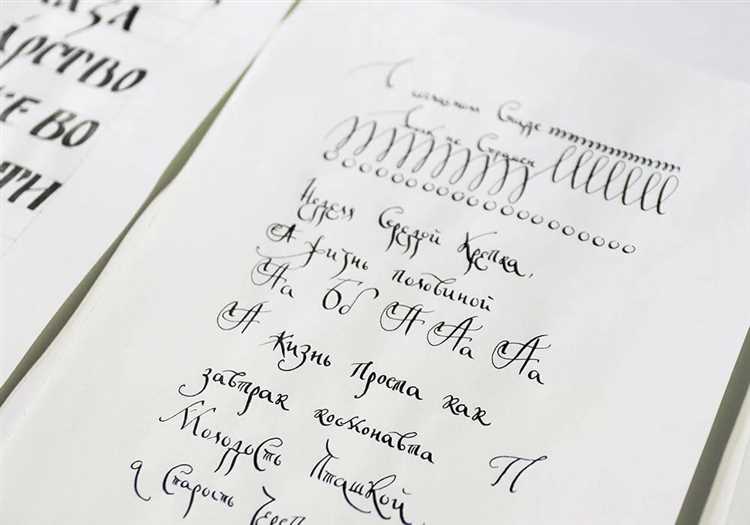 АРСТВО
ВО
ТИ
как не
Неделя Середой Крепка,
А жизнь половиной
Аа Бб А Аа Аа
А жизнь проста как
завтрак космонавта П
Молодость Пташкой,
а Старость Череп